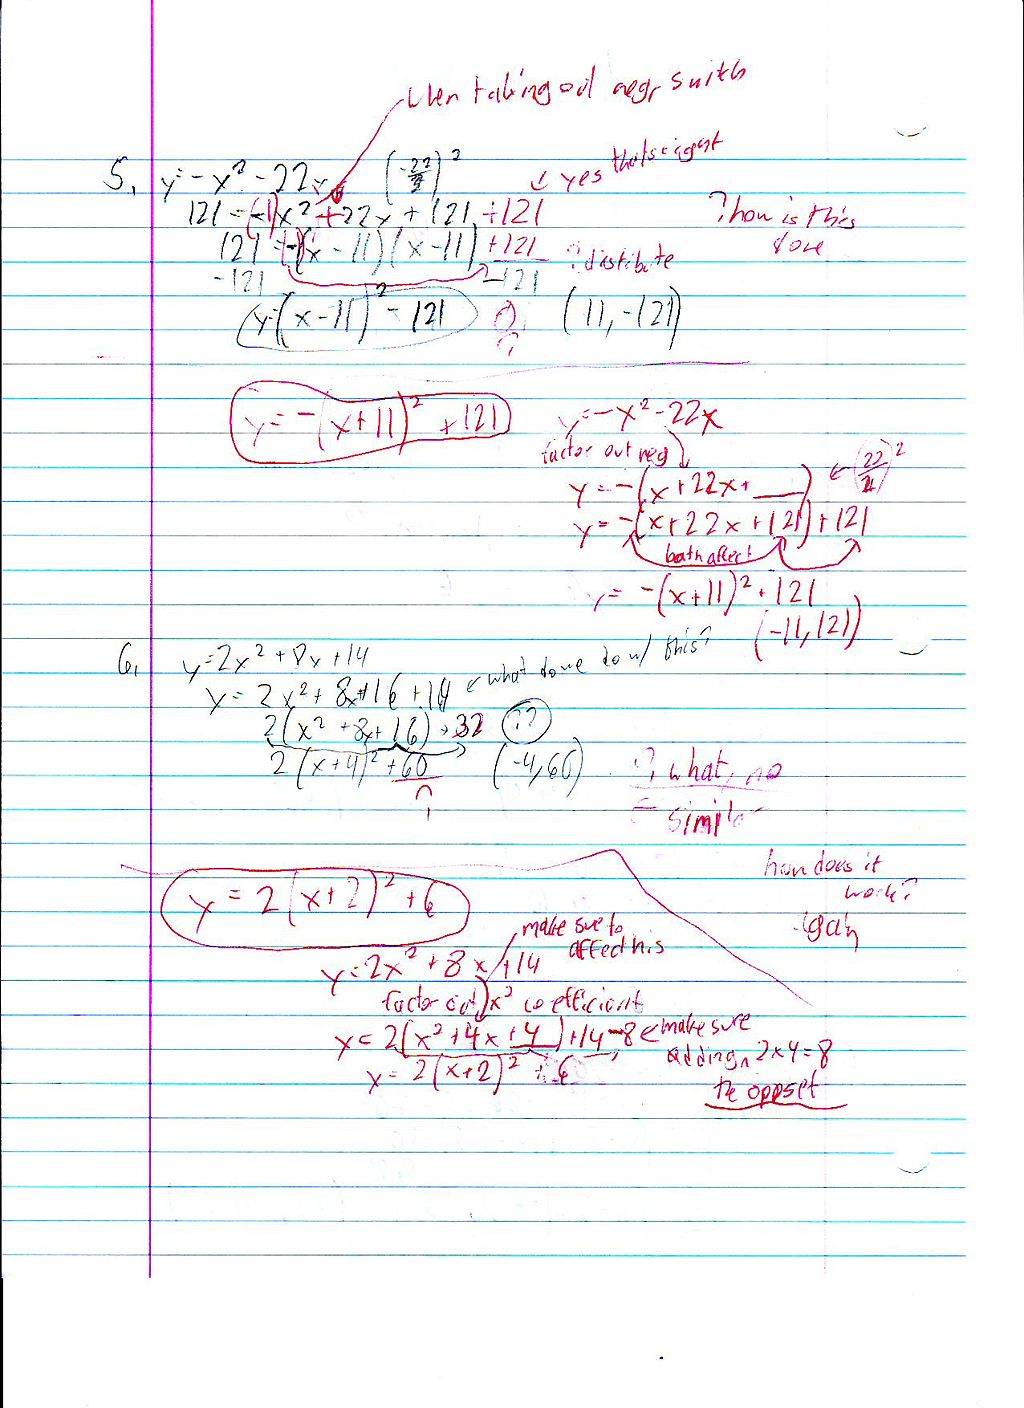 when taking out neg, switch
5. y=-x² -22x (-22/2)²
↙ yes that's right
121=-(1)x²+22x+121+121
? how is this done
121 + -(x-11)(x-11)+121 ? distibute
-121 -121
y=(x-11)²-121 0 ? (11,-121)
y=-(x+11)²+121
y=-x²-22x
factor out neg
y=-(x+22x+___) ← (22/2)²
y=-(x+22x+121)+121
both affect
y=-(x+11)²+121
(-11,121)
6. y=2x²+8x+14
y=2x²+8x+16+14 ← what do we do w/ this?
2(x²+8x+16)+32 ??
2(x+4)²+60 (-4,60)
?
? what, no
simple
how does it work?
y=2(x+2)²+6
make sure to
y=2x²+8x+14
factor out x² coefficient
y=2(x²+4x+4)+14-8 ← make sure
adding 2x4=8
y=2(x+2)²+6
the oppset